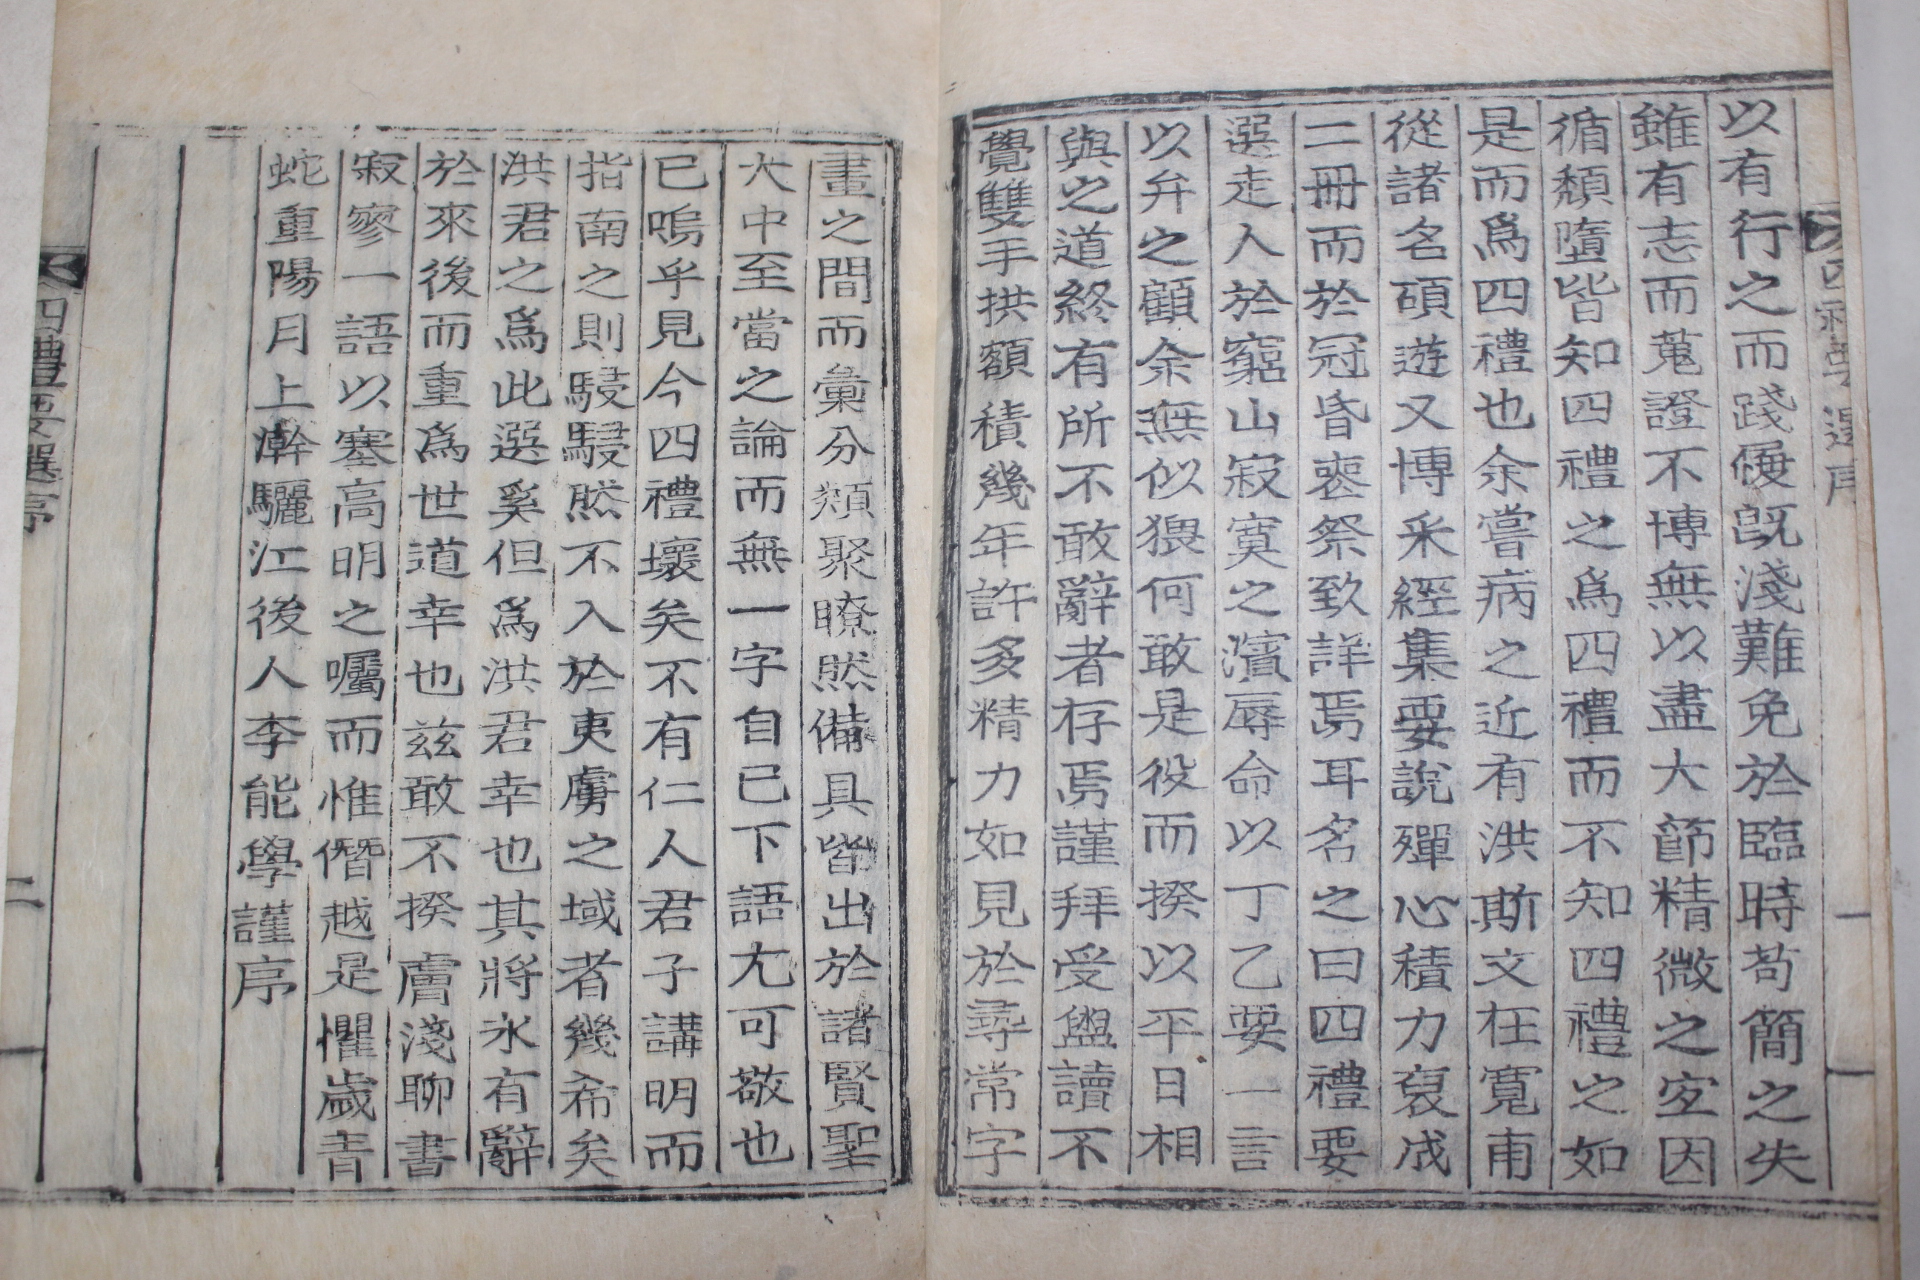 以有行之而踐履旣淺難免於臨時苟簡之失
雖有志而蒐證不博無以盡大節精微之宜因
循頹墮皆知四禮之爲四禮而不知四禮之如
是而爲四禮也余嘗病之近有洪斯文在寬甫
從諸名碩遊又博采經集要說殫心積力裒成
二冊而於冠昏喪祭致詳焉耳名之曰四禮要
選走人於窮山寂寞之濱辱命以丁乙要一言
以弁之顧余無似猥何敢是役而揆以平日相
與之道終有所不敢辭者存焉謹拜受盥讀不
覺雙手拱額積幾年許多精力如見於尋常字
畫之間而彙分類聚瞭然備具皆出於諸賢聖
大中至當之論而無一字自已下語尤可敬也
已嗚乎見今四禮壞矣不有仁人君子講明而
指南之則駸駸然不入於夷虜之域者幾希矣
洪君之爲此選奚但爲洪君幸也其將永有辭
於來後而重爲世道幸也玆敢不揆膚淺聊書
寂寥一語以塞高明之囑而惟僭越是懼歲青
蛇重陽月上澣驪江後人李能學謹序
四禮要選序
二